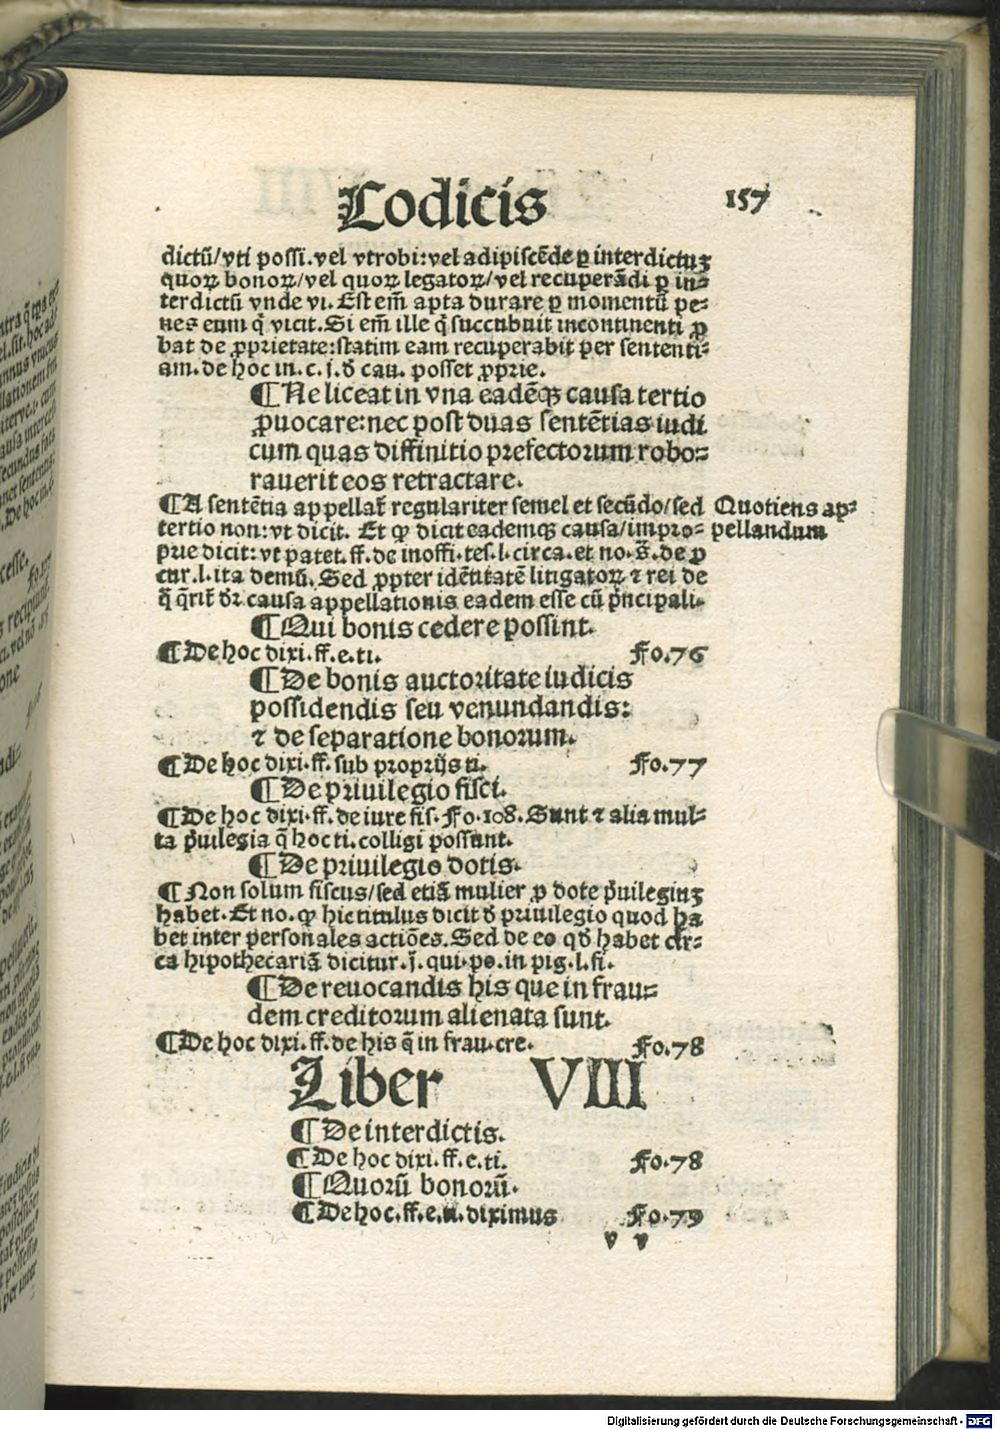 Codicis 157
dictũ/vti possi.vel vtrobi:vel adipiscẽde ꝑ interdictuꝫ
quoꝝ bonoꝝ/vel quoꝝ legatoꝝ/vel recuperãdi ꝑ in⸗
terdictũ vnde vi. Est em̃ apta durare ꝑ momentũ pe⸗
nes eum q̃ vicit. Si em̃ ille q̃ succubuit incontinenti ꝓ
bat de ꝓprietate:statim eam recuperabit per sententi⸗
am. de hoc in. c. j. ð cau. posset ꝓprie.
¶ Ne liceat in vna eadẽqꝫ causa tertio
ꝓuocare:nec post duas sentẽtias iudi
cum quas diffinitio prefectorum robo⸗
rauerit eos retractare.
¶ A sentẽtia appellat̃ regulariter semel et secũdo/sed
Quotiens ap⸗
tertio non:vt dicit. Et ꝙ dicit eademqꝫ causa/impro⸗
pellandum
prie dicit: vt patet. ff. de inoffi. tes. l. circa. et no. s̃. de ꝓ
cur. l. ita demũ. Sed ꝓpter idẽtitatẽ litigatoꝝ ⁊ rei de
q̃ q̃rit̃ dr̃ causa appellationis eadem esse cũ p̃ncipali.
¶ Qui bonis cedere possint.
¶ De hoc dixi. ff. e. ti. Fo. 76
¶ De bonis auctoritate iudicis
possidendis seu venundandis:
⁊ de separatione bonorum.
¶ De hoc dixi. ff. sub proprijs ti. Fo. 77
¶ De priuilegio fisci.
¶ De hoc dixi. ff. de iure fis. Fo. 108. Sunt ⁊ alia mul⸗
ta p̃uilegia q̃ hoc ti. colligi possunt.
¶ De priuilegio dotis.
¶ Non solum fiscus/sed etiã mulier ꝓ dote p̃uilegiuꝫ
habet. Et no. ꝙ hic titulus dicit ð priuilegio quod ha
bet inter personales actiões. Sed de eo qð habet cir⸗
ca hipothecariã dicitur. j̃. qui. po. in pig. l. fi.
¶ De reuocandis his que in frau⸗
dem creditorum alienata sunt.
¶ De hoc dixi. ff. de his q̃ in frau. cre. Fo. 78
Liber VIII
¶ De interdictis.
¶ De hoc dixi. ff. e. ti. Fo. 78
¶ Quorũ bonorũ.
¶ De hoc. ff. e. ti. diximus Fo. 79
v v
Digitalisierung gefördert durch die Deutsche Forschungsgemeinschaft - DFG